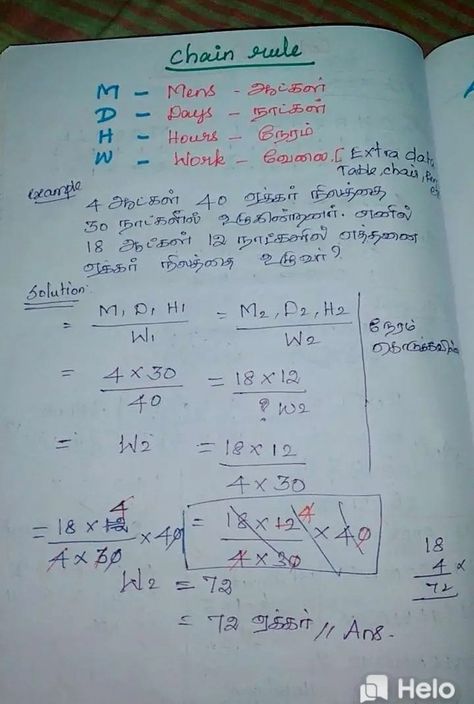 chain rule
M - Mens - ஆட்கள்
D - Days - நாட்கள்
H - Hours - நேரம்
W - Work - வேலை [Extra data,
Table, chair,
example
4 ஆட்கள் 40 ஏக்கர் நிலத்தை
30 நாட்களில் உழுகின்றனர். எனில்
18 ஆட்கள் 12 நாட்களில் எத்தனை
ஏக்கர் நிலத்தை உழுவர்?
Solution:
= M1 D1 H1 / W1 = M2, D2, H2 / W2
நேரம்
= 4 × 30 / 40 = 18 × 12 / ? W2
= W2 = 18 × 12 / 4 × 30
= 18 × 12 / 4 × 30 × 40 = 18 × 12 / 4 × 30 × 40
4 4
W2 = 72
= 72 ஏக்கர் // Ans.
18
4 ×
72
Helo